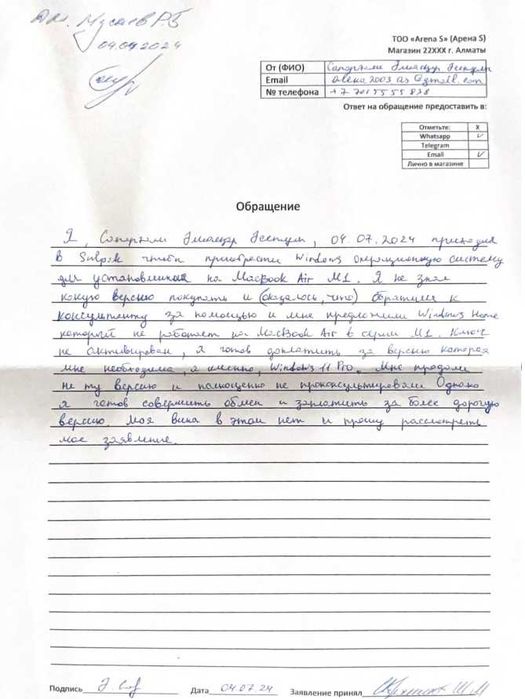 Мусаев РБ
09.07.2024
ТОО «Arena S» (Арена S)
Магазин 22XXX г. Алматы
От (ФИО)
Email
№ телефона +7 701 5555 838
Ответ на обращение предоставить в:
Отметьте: X
Whatsapp ✓
Telegram
Email ✓
Лично в магазине
Обращение
Я, 04 07.2024 приходил
в Sulpak чтобы приобрести Windows операционную систему
для на MacBook Air M1. Я не знал
какую версию покупать и (оказалось, что) обратился к
консультанту за помощью и мне предложили Windows Home
который не работает на MacBook Air в серии M1. Ключ
не активирован, я готов доплатить за версию которая
мне необходима, а именно, Windows 11 Pro. Мне продали
не ту версию и не проконсультировали Однако
я готов совершить обмен и заплатить за более дорогую
версию. Моя вина в этом нет и прошу рассмотреть
мое заявление.
Подпись Дата 04.07.24 Заявление принял